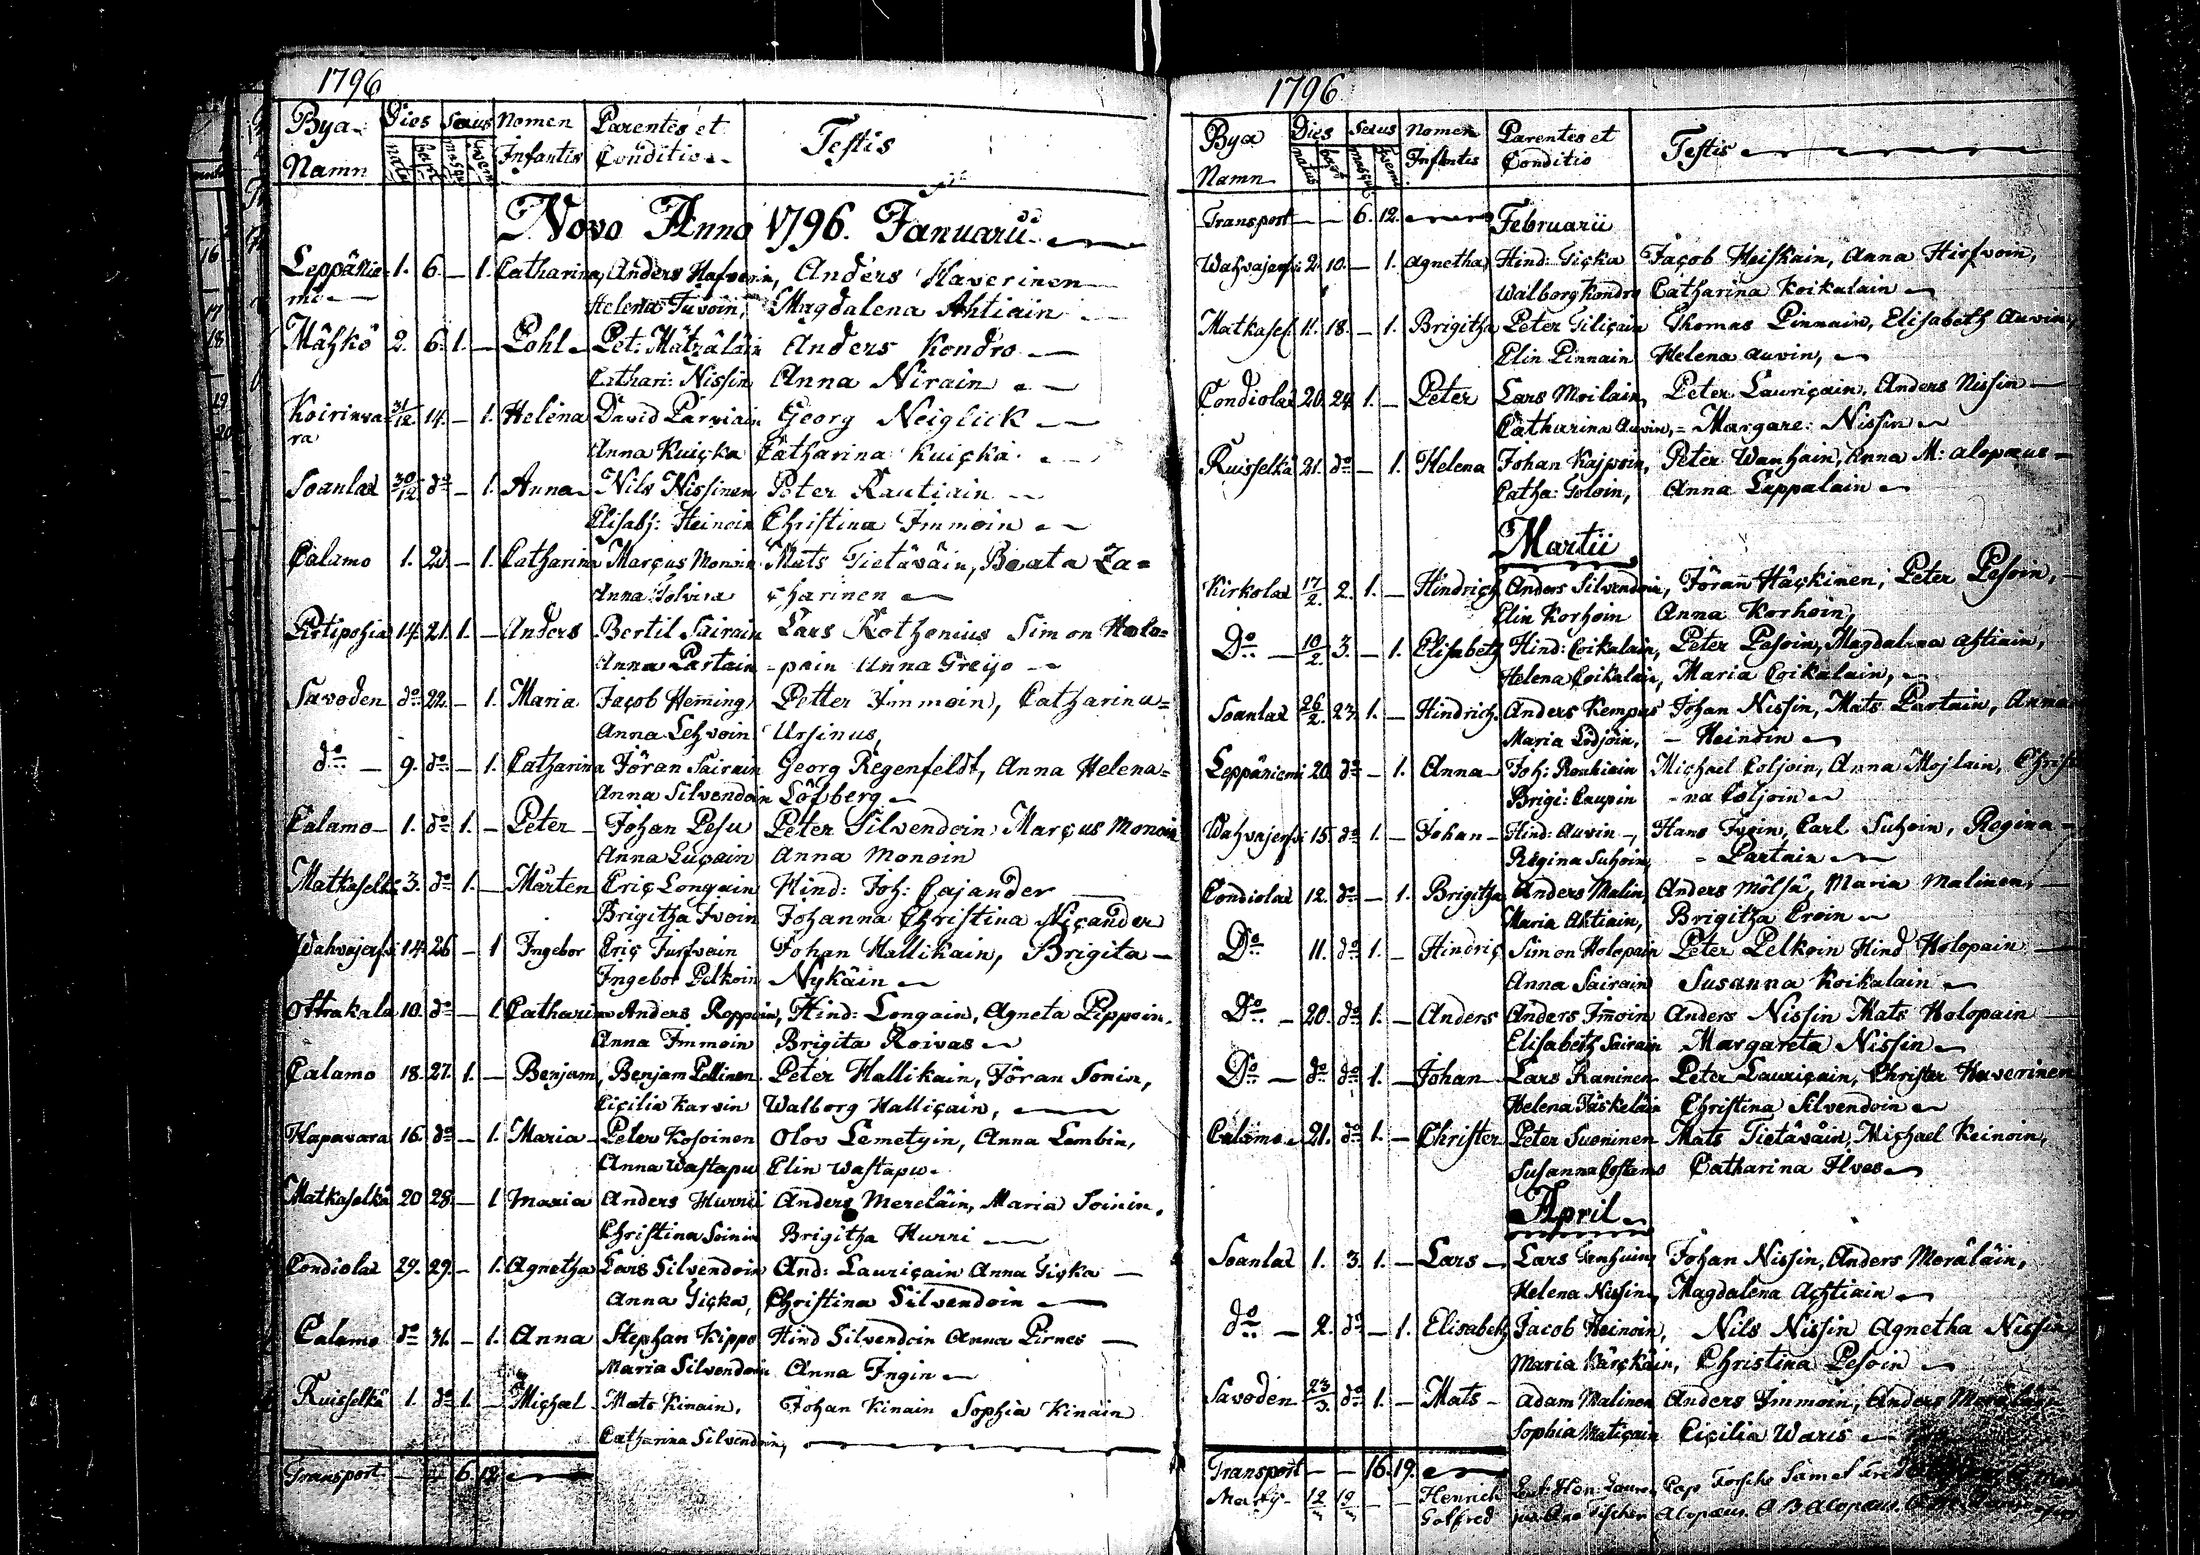 1796
Bya Namn Dies natus bapt Sexus mascul foem Nomen Infantis Parentes et Conditio Testis
Novo Anno 1796. Januarii
Leppänie- 1. 6. — 1. Catharina, Anders Hafverin, Anders Haverinen
mi Helena Juvoin, Magdalena Ahtiain
Mätzkö 2. 6. 1. — Pohl Pet: Mätzäläin Anders Kondro
Cathari: Nissin Anna Nirain
Koirinva- 31/12 14. — 1. Helena David Parviain Georg Neiglick
ra Anna Kuicka Catharina Kuicka
Soanlax 30/12 do — 1. Anna Nils Nissinen Peter Rautiain
Elisab: Heinoin Christina Immoin
Calamo 1. 20. — 1. Catharina Marcus Monoin Mats Tietäväin, Beata Za=
Anna Tolvina charinen
Rotipohja 14. 21. 1. — Anders Bertil Sairain Lars Rothenius Simon Holo=
Anna Partain -pain Anna Greijo
Savoden do 22. — 1. Maria Jacob Heming Petter Immoin, Catharina=
Anna Lehvoin Ursinus,
do — 9. do — 1. Catharina Jöran Sairain Georg Regenfeldt, Anna Helena=
Anna Silvendoin Löfberg
Calamo 1. do 1. — Peter Johan Pesu Peter Silvendoin Marcus Monoin
Anna Lucain Anna Monoin
Matkaselkä 3. do 1. — Mårten Eric Longain Hind: Joh: Cajander
Brigitha Ivoin Johanna Christina Nicander
Wahvajerfvi 14. 26 — 1 Ingebor Eric Turfvain Johan Hallikain, Brigita
Ingebor Pelkoin Nykäin
Ottrakala 10. do — 1. Catharin Anders Roppoin, Hind: Longain, Agneta Pippoin.
Anna Immoin Brigita Roivas
Calamo 18. 27. 1. — Benjam, Benjam Pellinen Peter Hallikain, Jöran Sonin,
Cicilia Karvin Walborg Hallicain,
Hapavara 16. do — 1. Maria Peter Kosoinen Olov Lemetyin, Anna Lembin,
Anna Wastapu Elin Wastapu
Matkaselkä 20 28 — 1 Maria Anders Hurri Anders Mereläin, Maria Soinin.
Christina Soinin Brigitha Hurri
Condiolax 29. 29. — 1. Agnetha Lars Silvendoin And: Lauricain Anna Gicka
Anna Gicka, Christina Silvendoin
Calamo do 31. — 1. Anna Stephan Kippo Hind Silvendoin Anna Pirnes
Maria Silvendoin Anna Ingin
Ruisselkä 1. do 1. — Michael Mats Kinain, Johan Kinain Sophia Kinain
Catharina Silvendoin,
Transport — — 6. 12
1796
Bya Namn Dies natus bapt Sexus mascul foem Nomen Infantis Parentes et Conditio Testis
Transport — — 6. 12. Februarii
Wahvajerfvi 2. 10. — 1. Agnetha Hind: Gicka Jacob Heiskain, Anna Hirfvoin,
Walborg Kondro Catharina Koikalain
Matkasel. 11. 18. — 1. Brigitha Peter Gilicain Thomas Pinnain, Elisabeth Auvin,
Elin Pinnain Helena Auvin,
Condiolax 20. 24. 1. — Peter Lars Moilain, Peter Lauricain, Anders Nissin
Catharina Auvin, = Margare: Nissin
Ruisselkä 21. do — 1. Helena Johan Kajpoin, Peter Wanhain, Anna M: Alopæus
Catha: Goloin, Anna Lappalain
Martii
Kirkolax 17/2. 2. 1. — Hindrich Anders Silvendoin, Jöran Häckinen, Peter Pesoin,
Elin Korhoin Anna Korhoin,
Do — 10/2. 3. — 1. Elisabeth Hind: Coikalain, Peter Pesoin, Magdalena Ahtiain,
Helena Coikalain, Maria Coikalain,
Soanlax 26/2. 23. 1. — Hindrich. Anders Kempas Johan Nissin, Mats Partain, Anna
Maria Lodjoin, - Heinoin
Leppäniemi 20. do — 1. Anna Joh: Roukiain Michael Coljoin, Anna Mojlain, Christi
Brigi: Caupin -na Coljoin
Wahvajerfvi 15. do 1. — Johan Hind: Auvin Hans Ivoin, Carl Suhoin, Regina
Regina Suhoin, - Partain
Condiolax 12. do — 1. Brigitha Anders Malin, Anders Mölsä, Maria Malinen,
Maria Ahtiain, Brigitha Eroin
Do 11. do 1. — Hindric Simon Holopain Peter Pelkoin Hind Holopain
Anna Sairain Susanna Koikalain
Do — 20. do 1. — Anders Anders Im̄oin Anders Nissin Mats Holopain
Elisabeth Sairain Margareta Nissin
Do — do do 1. — Johan Lars Raninen Peter Lauricain, Christer Haverinen
Helena Jäskeläin Christina Silvendoin
Calamo 21. do 1. — Christer Peter Suoninen Mats Tietäväin, Michael Keinoin,
Susanna Costamo Catharina Ilves
April
Soanlax 1. 3. 1. — Lars Lars Tenhuin Johan Nissin, Anders Moräläin,
Helena Nissin, Magdalena Achtiain
do — 2. do — 1. Elisabeth Jacob Heinoin, Nils Nissin Agnetha Nissin
Maria Kärckäin, Christina Pesoin
Savoden 23/3. do 1. — Mats Adam Malinen Anders Immoin, Anders
Sophia Maticain Cicilia Waris
Transport — — 16. 19.
Martij 12 19 — — Henrich Hen: Cap Samel
Gotfred Alopæus. A B Alopæus.